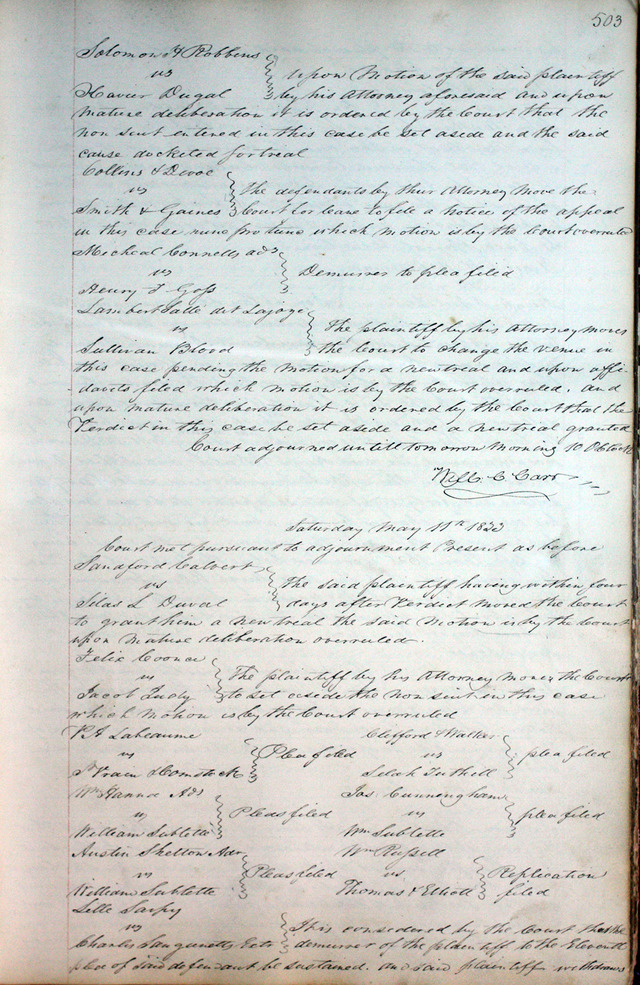 503
Solomon H Robbins
vs
Xavier Dugal
upon Motion of the said plaintiff
by his Attorney aforesaid and upon
mature deliberation it is ordered by the Court that the
non suit entered in this case be set aside and the said
cause docketed for trial
Collins & Devoe
vs
Smith & Gaines
The defendants by their Attorney move the
Court for leave to file a notice of the appeal
in this case nunc pro tunc which motion is by the Court overruled
Micheal Connells ads
vs
Henry T Goss
Demurrer to plea filed
Lambert Salle dit Lajoye
vs
Sullivan Blood
The plaintiff by his Attorney moves
the Court to change the venue in
this case pending the motion for a new trial and upon affi-
davits filed which motion is by the Court overruled. and
upon mature deliberation it is ordered by the Court that the
Verdict in this case be set aside and a new trial granted
Court adjourned untill tomorrow morning 10 OClock
Will. C. Carr
Saturday May 11th 1833
Court met pursuant to adjournment Present as before
Sandford Calvert
vs
Silas L Duval
The said plaintiff having within four
days after Verdict moved the Court
to grant him a new trial the said Motion is by the Court
upon mature deliberation overruled.
Felix Coonce
vs
Jacob
The plaintiff by his Attorney moves the Court
to set aside the non suit in this case
which motion is by the Court overruled
Labeaume
vs
St Vrain & Comstock
Plea filed
Clifford & Walker
vs
Selah Tuthill
plea filed
Wm Hanna Ads
vs
William Sublette
Pleas filed
Jas. Cunningham
vs
Wm Sublette
plea filed
Austin Shelton Adr
vs
William Sublette
Pleas filed
Wm Russell
vs
Thomas & Elliott
Replication
filed
Sarpy
vs
Charles Sanguinetts Exts
It is considered by the Court that the
demurrer of the plaintiff to the Eleventh
plea of said defendant be sustained. and said plaintiff withdraws